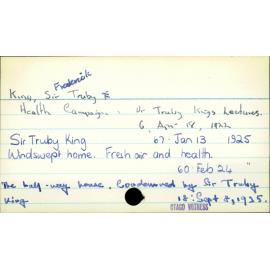 Frederick
King, Sir Truby &
Health Campaign. Dr Truby Kings Lectures.
6, Apr 18, 1922
Sir Truby King 67: Jan 13 1925
Windswept home. Fresh air and health.
60 Feb 24 "
The half-way house. Condemned by Sir Truby
King 18: Sept 8, 1925.
OTAGO WITNESS